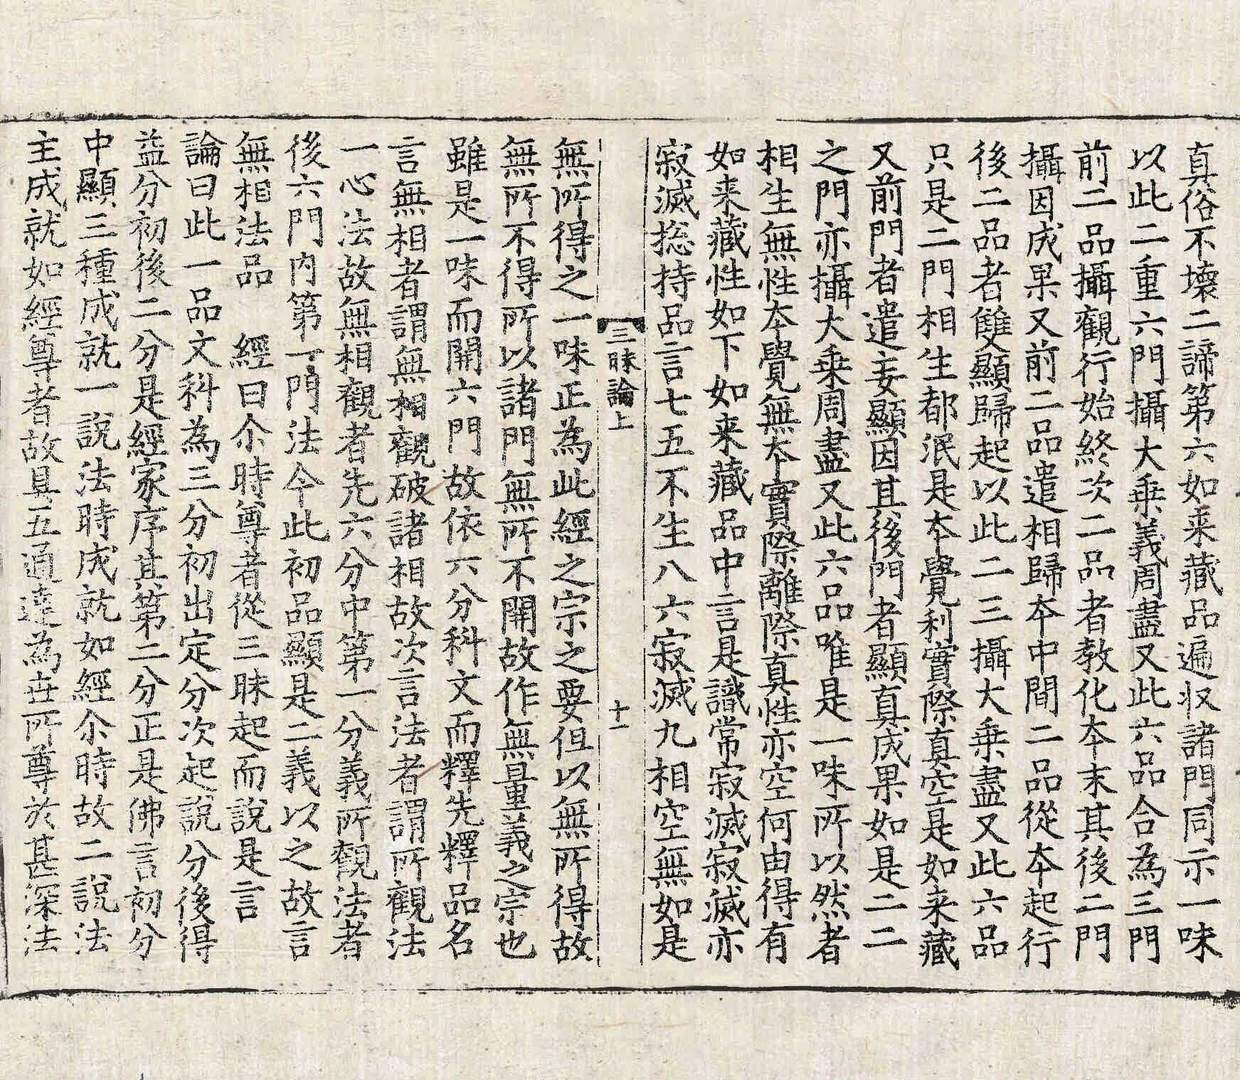 真俗不壞二諦第六如来藏品遍収諸門同示一味
以此二重六門攝大乗義周盡又此六品合為三門
前二品攝觀行始終次二品者教化夲末其後二門
攝因成果又前二品遣相歸夲中間二品從夲起行
後二品者雙顯歸起以此二三攝大乗盡又此六品
只是二門相生都泯是夲覺利實際真空是如来藏
又前門者遣妄顯因其後門者顯真成果如是二二
之門亦攝大乗周盡又此六品唯是一味所以然者
相生無性夲覺無夲實際離際真性亦空何由得有
如来藏性如下如来藏品中言是識常寂滅寂滅亦
寂滅捴持品言七五不生八六寂滅九相空無如是
三昧論上 十一
無所得之一味正為此經之宗之要但以無所得故
無所不得所以諸門無所不開故作無量義之宗也
雖是一味而開六門故依六分科文而釋先釋品名
言無相者謂無相觀破諸相故次言法者謂所觀法
一心法故無相觀者先六分中第一分義所觀法者
後六門内第一門法今此初品顯是二義以之故言
無相法品 經曰尒時尊者從三昧起而說是言
論曰此一品文科為三分初出定分次起說分後得
益分初後二分是經家序其第二分正是佛言初分
中顯三種成就一說法時成就如經尒時故二說法
主成就如經尊者故具五通達為世所尊於甚深法